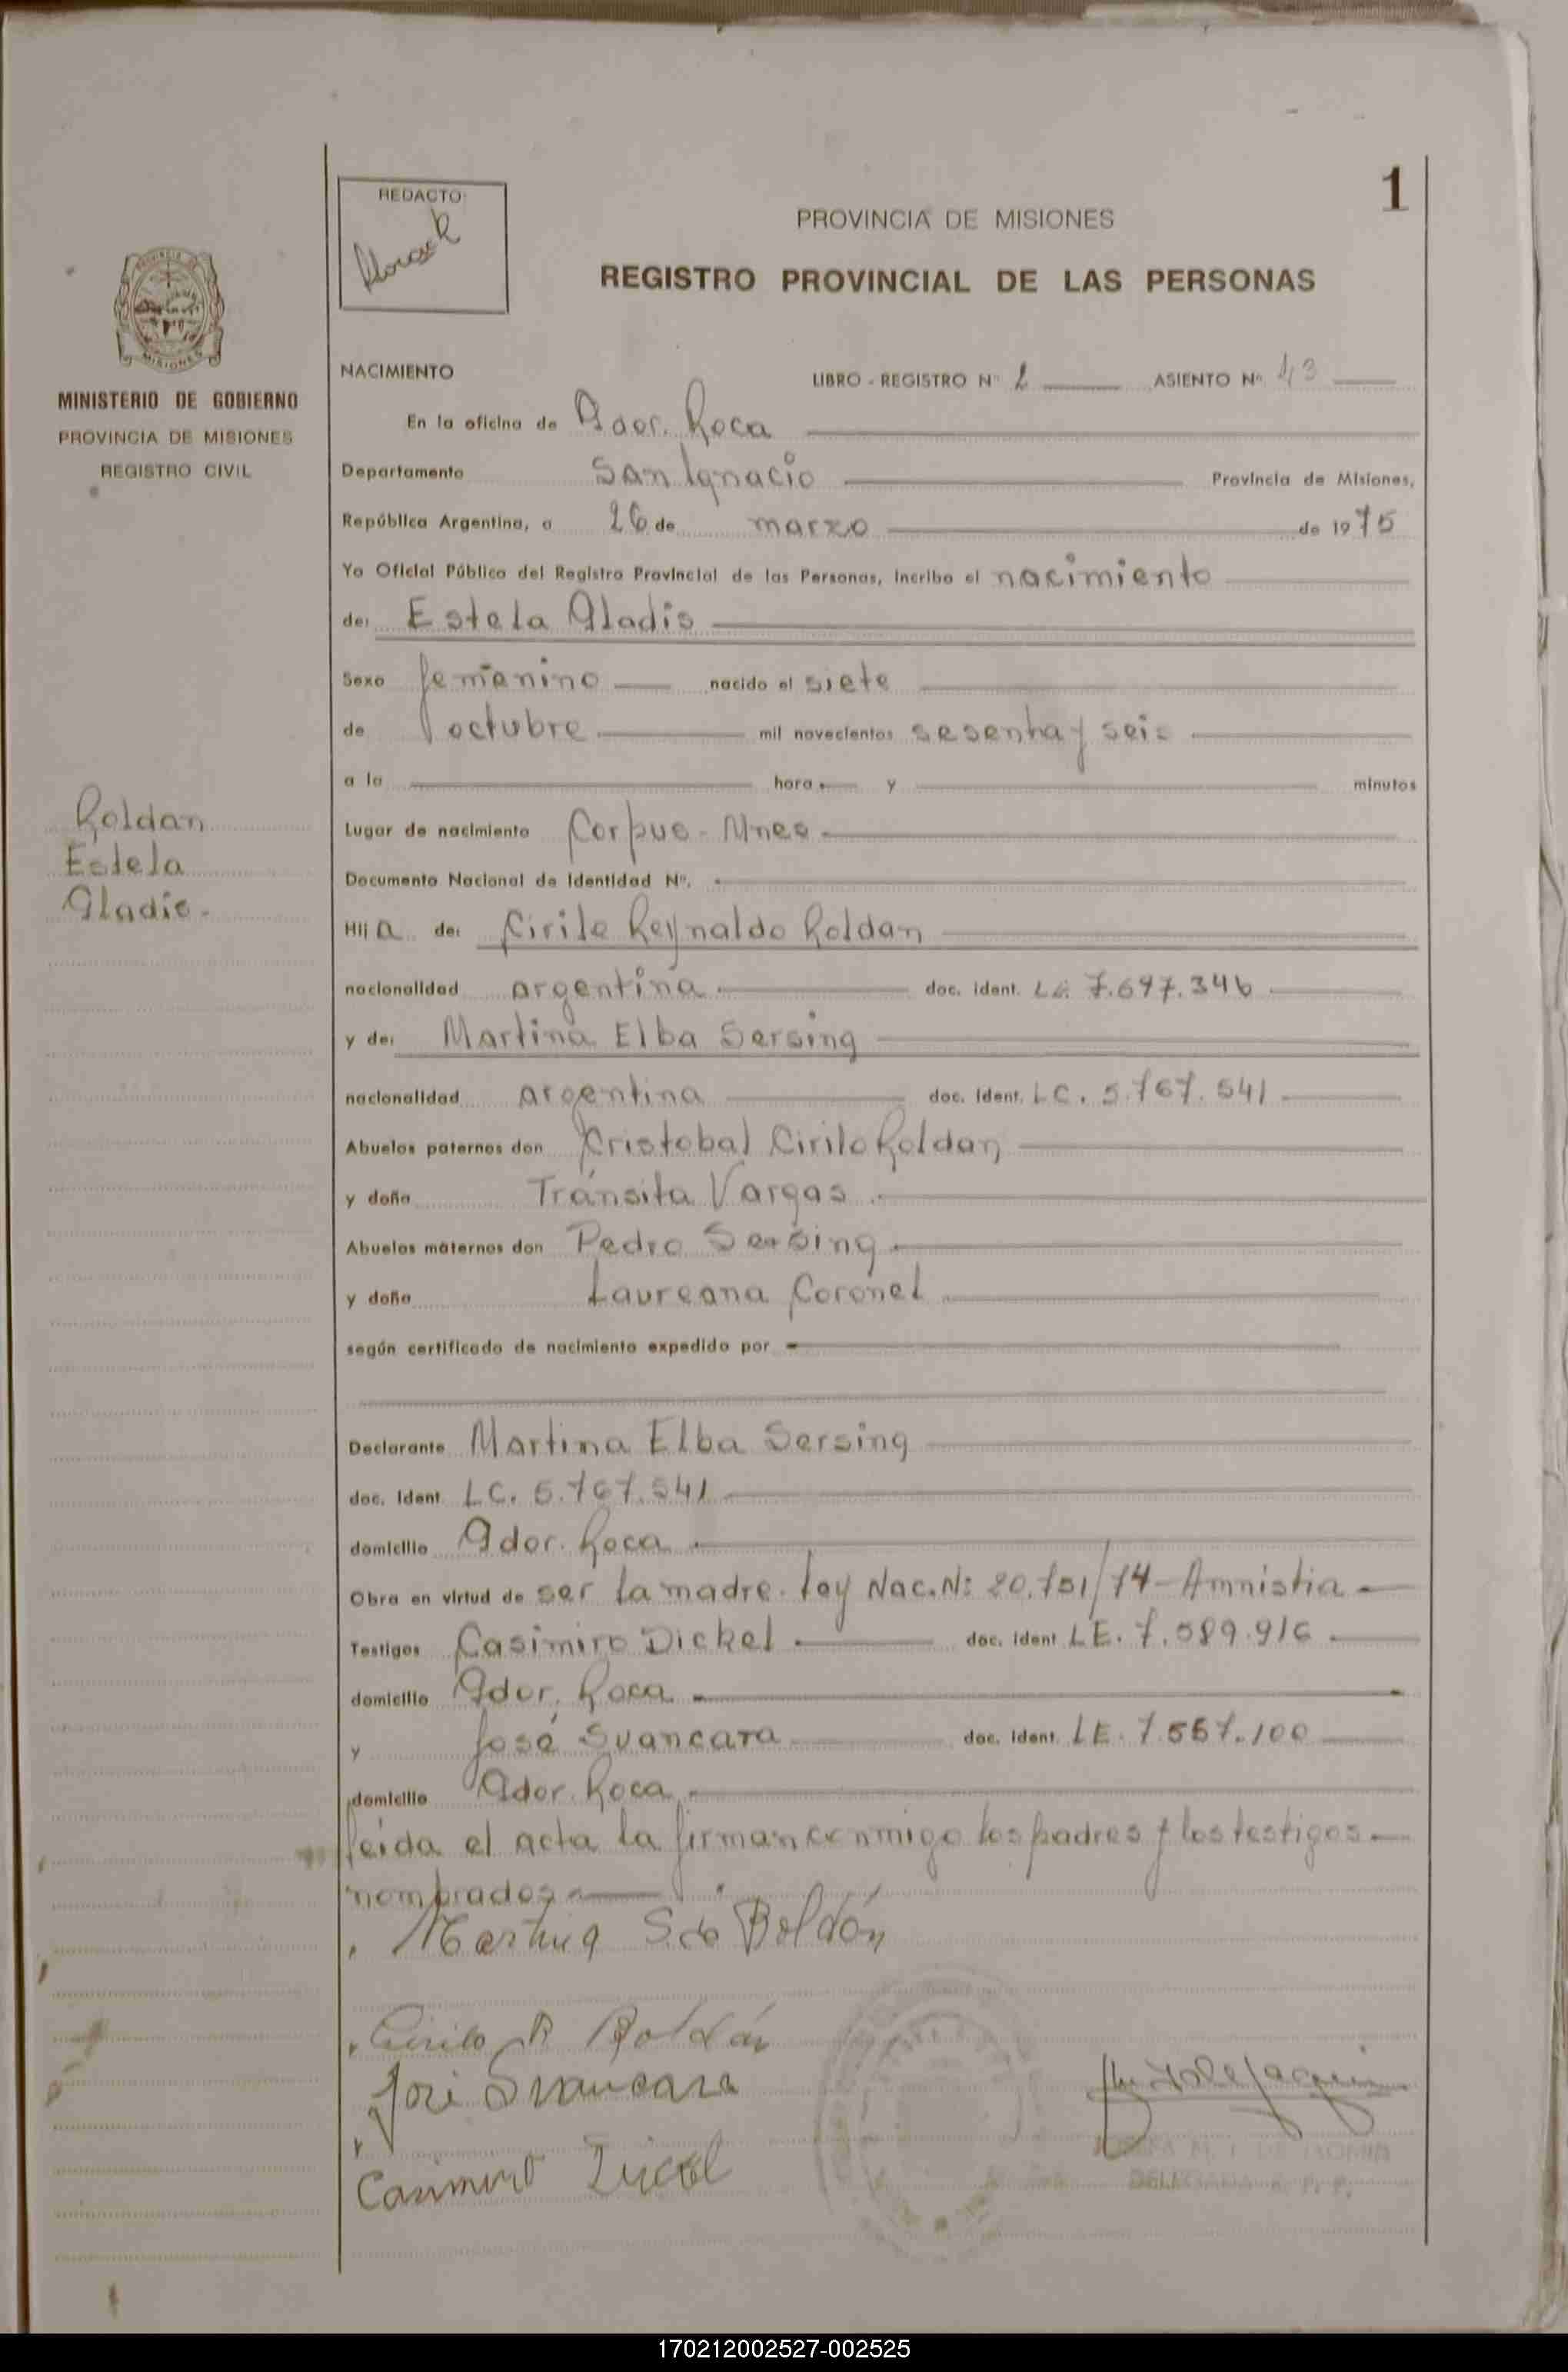 1
REDACTO:
PROVINCIA DE MISIONES
REGISTRO PROVINCIAL DE LAS PERSONAS
PROVINCIA DE
MISIONES
MINISTERIO DE GOBIERNO
PROVINCIA DE MISIONES
REGISTRO CIVIL
NACIMIENTO LIBRO - REGISTRO Nº 2 ASIENTO Nº 43
En la oficina de Gdor. Roca
Departamento San Ignacio Provincia de Misiones,
República Argentina, a 26 de marzo de 1975
Yo Oficial Público del Registro Provincial de las Personas, incribo el nacimiento
de: Estela Gladis
Sexo femenino nacido el siete
de octubre mil novecientos sesenta y seis
a la hora y minutos
Lugar de nacimiento Corpus - Mnes
Documento Nacional de Identidad Nº.
Roldan
Estela
Gladis.
Hij a de: Cirilo Reynaldo Roldan
nacionalidad argentina doc. ident. LE. 7.697.346
y de: Martina Elba Sersing
nacionalidad argentina doc. ident. LC. 5.767.541
Abuelos paternos don Cristobal Cirilo Roldan
y doña Tránsita Vargas
Abuelos maternos don Pedro Sersing
y doña Laureana Coronel
según certificado de nacimiento expedido por
Declarante Martina Elba Sersing
doc. ident LC. 5.767.541
domicilio Gdor. Roca
Obra en virtud de ser la madre. Ley Nac. Nº 20.751/74 - Amnistia
Testigos Casimiro Dickel doc. ident LE. 7.589.916
domicilio Gdor. Roca
y José Svancara doc. ident. LE. 7.557.100
domicilio Gdor. Roca
leída el acta la firman conmigo los padres y los testigos
nombrados
Martina S. de Roldán
Cirilo R Roldán
José Svancara
Casimiro Dickel
DELEGADA R. P. P.
170212002527-002525